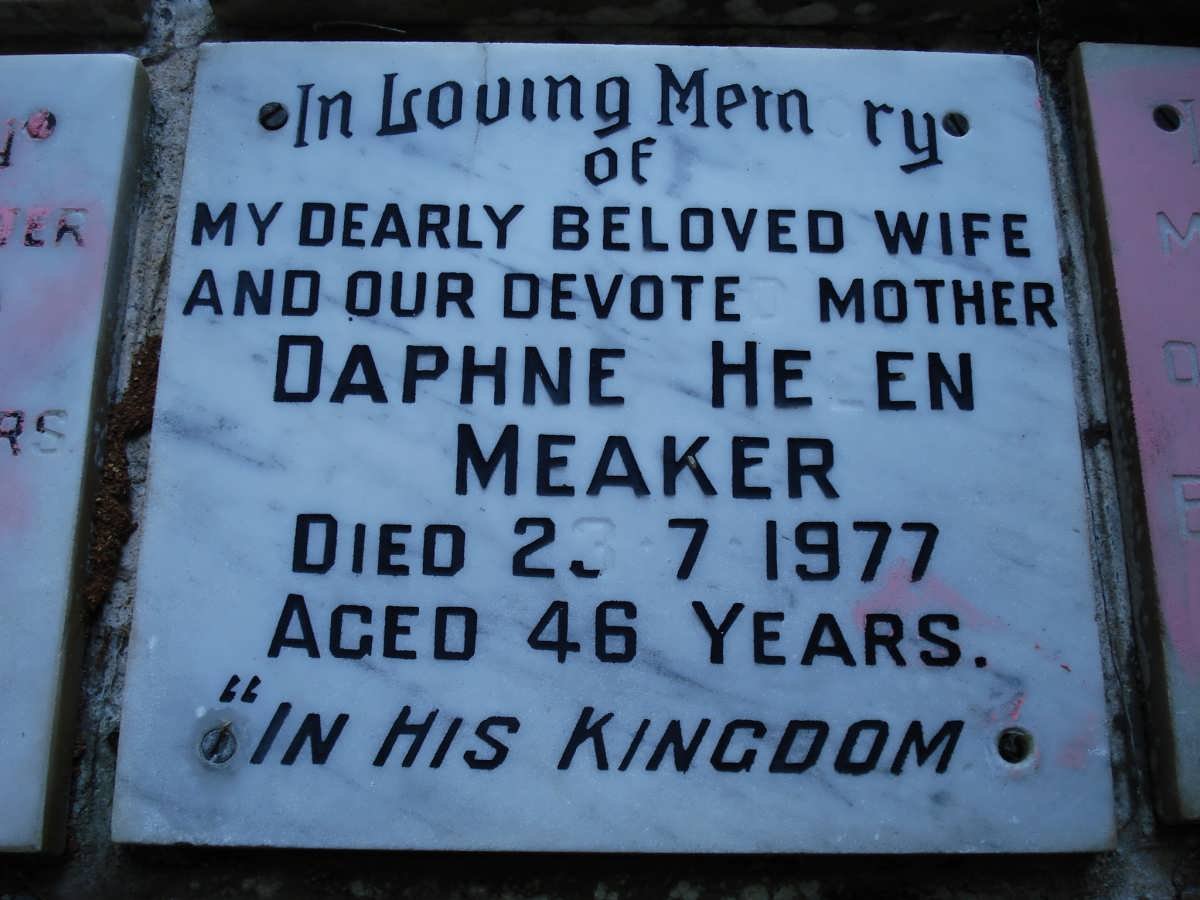 In Loving Memory
of
MY DEARLY BELOVED WIFE
AND OUR DEVOTED MOTHER
DAPHNE HELEN
MEAKER
DIED 23·7·1977
AGED 46 YEARS.
"IN HIS KINGDOM